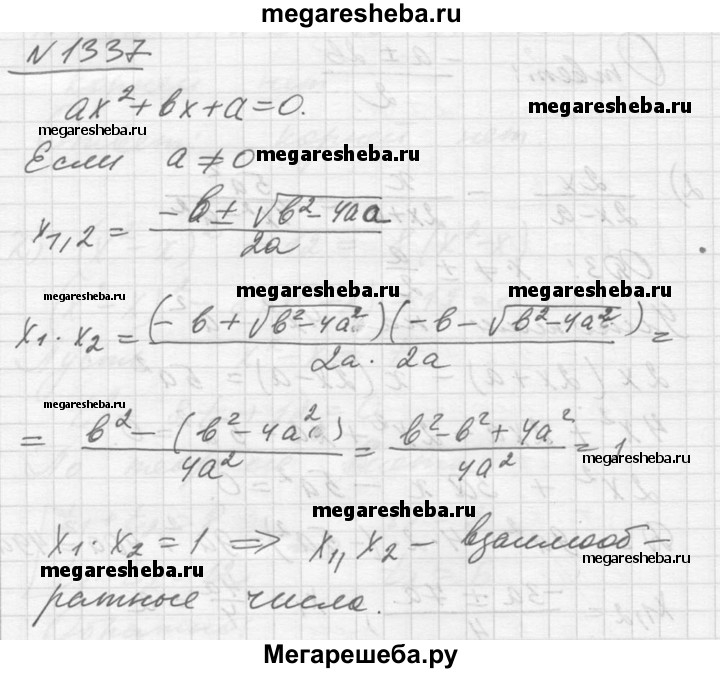 megaresheba.ru
N 1337
ax²+bx+a=0.
megaresheba.ru
megaresheba.ru
Если a≠0
megaresheba.ru
x₁,₂ = (-b ± √(b²-4aa)) / 2a
megaresheba.ru
megaresheba.ru
megaresheba.ru
x₁·x₂ = (-b+√(b²-4a²))(-b-√(b²-4a²)) / 2a·2a =
megaresheba.ru
= b²-(b²-4a²) / 4a² = b²-b²+4a² / 4a² = 1
megaresheba.ru
megaresheba.ru
x₁·x₂=1 ⇒ x₁, x₂ - взаимооб-
megaresheba.ru
megaresheba.ru
ратные числа.
Мегарешеба.ру